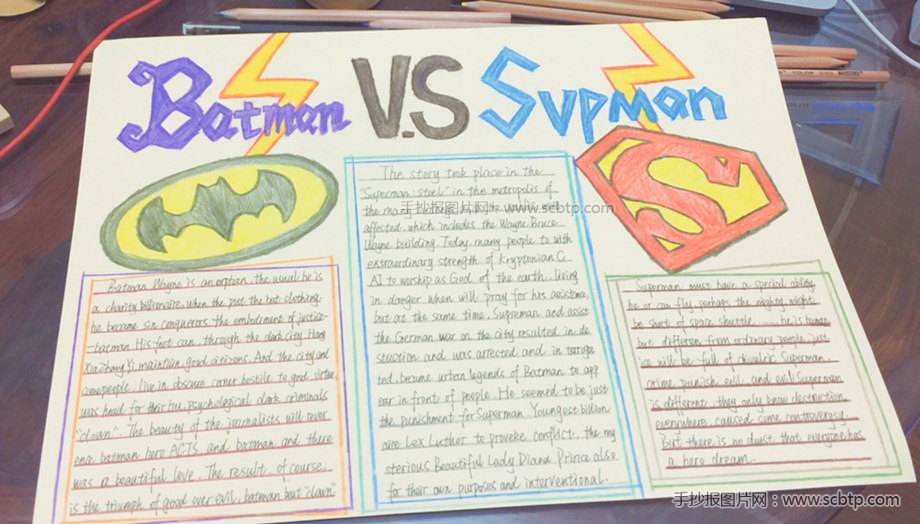 Batman V.S Supman
Batman Wayne is an orphan, the usual he is
a charity billionaire, when the put the bat clothing,
he become sin conquerors. the embodiment of justice-
-batman. His foot can through the dark city. Hong
Xiaozhang Yi, maintain good citizens. And the city and
some people live in obscure corner hostile to good virtue,
was head for their psychological dark criminals
"clown". The beauty of the journalists will never
batman hero ACTS, and batman and there
was a beautiful love. The result, of course
is the triumph of good over evil, batman but "clown"
The story took place in the
"Superman: steel" in the metropolis of
the
affected which includes the Wayne Bruce
Wayne building. Today, many people to with
extraordinary strength of Kryptonian C
Al to worship as God of the earth, living
in danger when will pray for his assistance,
but at the same time, Supreman and assist
the German war on the city resulted in de
struction and was arrested and in terriga
ted, became urban legends of Batman to app
ear in front of people. He seemed to be just
the punishment for Superman. Youngest billion
aire Lex Luthor to provoke conflict, the my
sterious Beautiful Lady Diana Prince also
for their own purposes and interventional.
Superman must have a special ability,
he or can fly, perhaps the mighty might
be short of space shuttle ...... he is human,
but different from ordinary people, just
ice will be full of chivalric Superman,
crime, punish evil, and evil Superman
is different, they only know destruction
everywhere, caused some controversy.
But there is no doubt that everyone has
a hero dream.
手抄报图片网：www.scbtp.com
手抄报图片网：www.scbtp.com